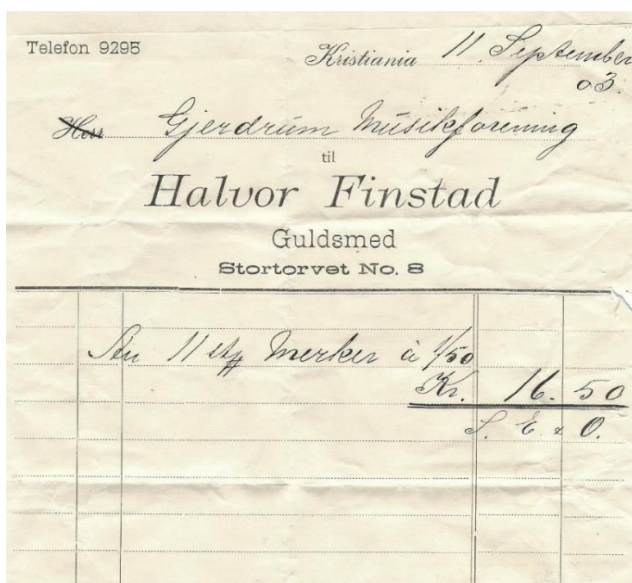 Telefon 9295
Kristiania 11. September
03.
Herr Gjerdrum Musikforening
til
Halvor Finstad
Guldsmed
Stortorvet No. 8
An 11 stk Merker à 1/50
Kr. 16.50
S. E & O.